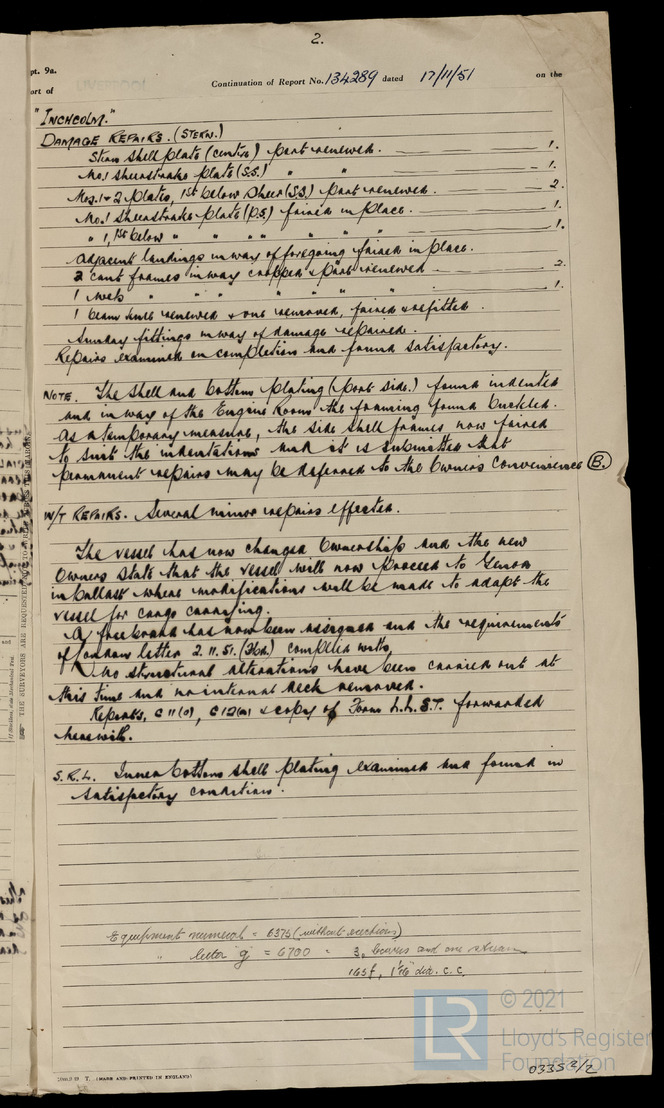 2.
pt. 9a.
ort of LIVERPOOL Continuation of Report No. 134289 dated 17/11/51 on the
"INCHCOLM."
DAMAGE REPAIRS. (STERN.)
Stern shell plate (centre) part renewed. 1.
No.1 sheerstrake plate (S.S.) " " 1.
Nos. 1 & 2 plates, 1st below Sheer (S.S.) part renewed. 2.
No.1 sheerstrake plate (P.S.) faired in place. 1.
" 1, 1st below " " " " " " " 1.
Adjacent landings in way of foregoing faired in place.
2 cant frames in way cropped & part renewed 2.
1 web " " " " " " 1.
1 beam knee renewed & one removed, faired & refitted.
Sundry fittings in way of damage repaired.
Repairs examined on completion and found satisfactory.
NOTE. The shell and bottom plating (port side.) found indented
and in way of the Engine Room the framing found buckled.
As a temporary measure, the side shell frames now faired
to suit the indentations and it is submitted that
permanent repairs may be deferred to the Owners convenience (B.)
W/T REPAIRS. Several minor repairs effected.
The vessel has now changed Ownership and the new
Owners state that the vessel will now proceed to Genoa
in ballast where modifications will be made to adapt the
vessel for cargo carrying.
A freeboard has now been assigned and the requirements
of London letter 2.11.51. complied with,
No structural alterations have been carried out at
this time and no internal deck removed.
Reports, C 11(a), C 12(a) & copy of Form L.L.S.T. forwarded
herewith.
S.R.L. Inner bottom shell plating examined and found in
satisfactory condition.
Equipment numeral = 6375 (without erections)
" letter "g" = 6700 = 3, bowers and one stream
165f, 1 13/16 dia. c.c.
T. (MADE AND PRINTED IN ENGLAND)
THE SURVEYORS ARE REQUESTED
LR © 2021
Lloyd's Register
Foundation
03353 2/2